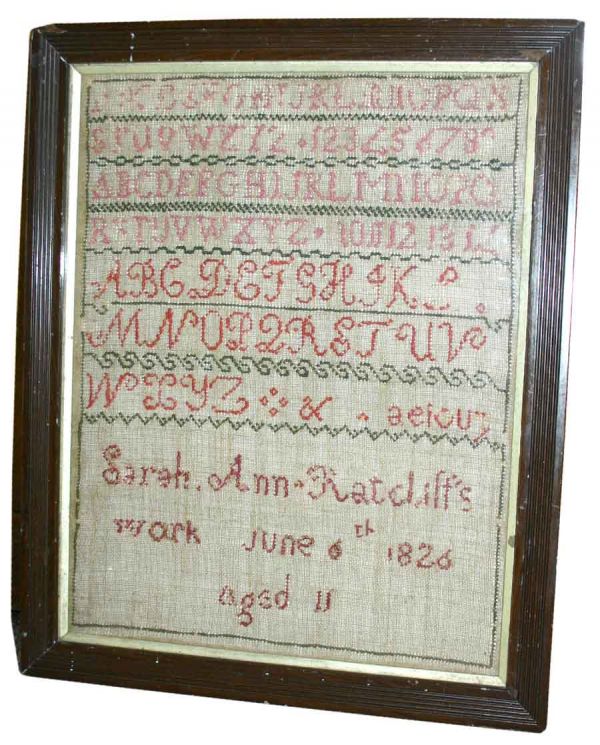 ABCDEFGHIJKLMNOPQR
STUVWXYZ · 123456789
ABCDEFGHIJKLMNOPQ
RSTUVWXYZ · 10 11 12 13 14
ABCDEFGHIKL
MNOPQRSTUV
WXYZ & aeiouy
Sarah. Ann-Ratcliff's
Work June 6th 1826
aged 11